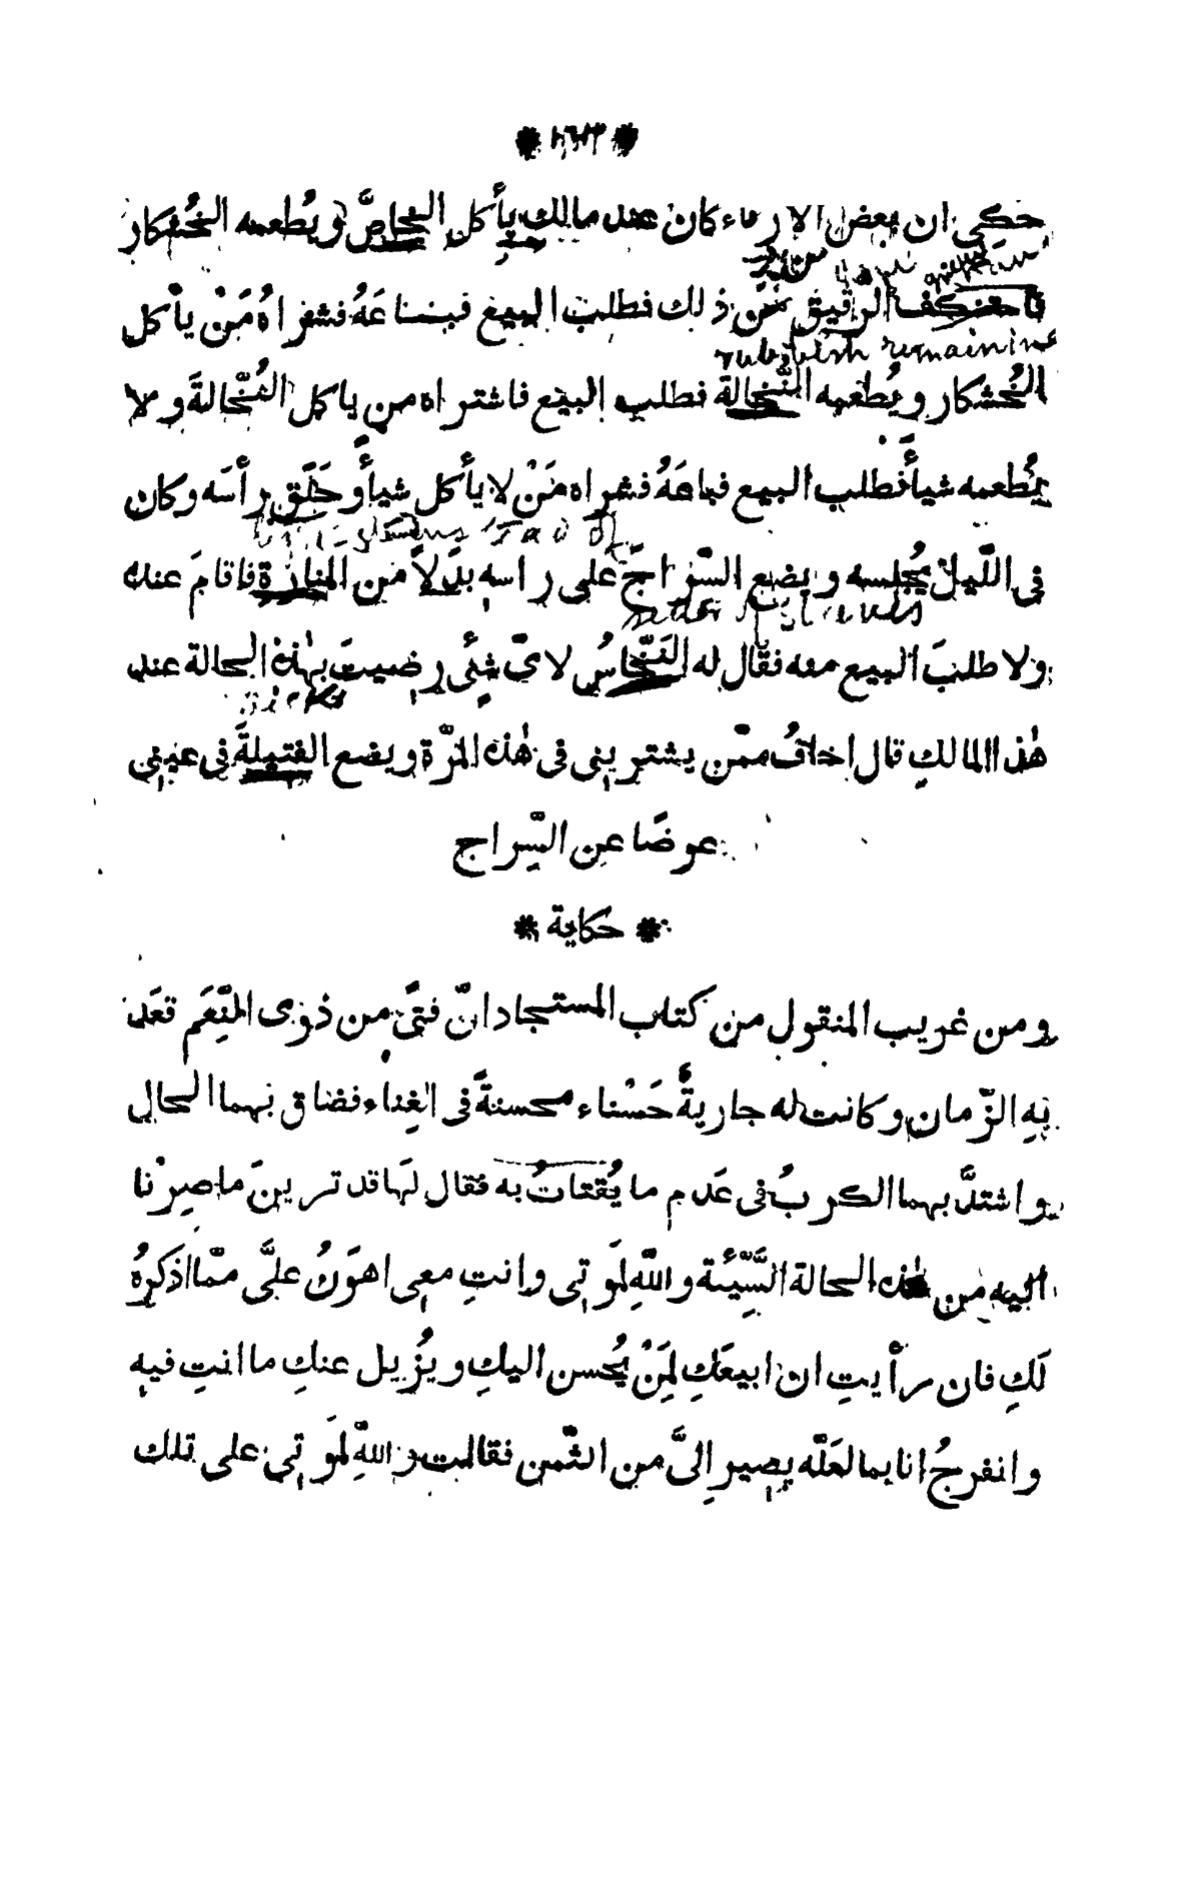 حكي ان بعض الارقاء كان عند مالك يأكل الخاصَّ ويُطعمه الخُشكار
فاستنكف الرقيق مِن ذلك فطلب البيع فباعَهُ فشراهُ مَنْ يأكل
rubbish remaining
الخُشكار ويُطعمه النُّخالة فطلب البيع فاشتراه من ياكل النُّخالةَ ولا
يُطعمه شيأً فطلب البيع فباعَهُ فشراه مَنْ لا يأكل شيأً وحَلَّق رأسَه وكان
في اللَّيل يُجلسه ويضع السِّراجَ على راسه بدَلاً من المنارَةِ فاقامَ عنده
seller of slaves
ولا طلبَ البيع منه فقال له النَّخّاسُ لايّ شئٍ رضيتَ بهٰذه الحالة عند
هٰذا المالكِ قال اخافُ ممّن يشتريني في هٰذه المرّة ويضع الفتيلةَ في عيني
عوضًا عن السِّراج
* حكاية *
ومن غريب المنقول من كتاب المستجاد انّ فتىً من ذوى النِّعَم قعَدَ
بِهِ الزّمان وكانت له جاريةٌ حَسْناء محسنةً في الغِناء فضاق بهما الحال
واشتدَّ بهما الكربُ في عَدم ما يُقتاتُ به فقال لهَا قد ترينَ ما صِرْنا
اليه من هٰذه الحالة السَّيِّئة واللّهِ لَموتي وانتِ معي اهوَنُ علىَّ ممّا اذكَرهُ
لَكِ فان رأيتِ ان ابيعَكِ لِمَنْ يُحسن اليكِ ويُزيل عنكِ ما انتِ فيه
وانفرجُ انا بما لعَلّه يصير اِلىَّ من الثّمن فقالت واللّهِ لَموتي على تلك